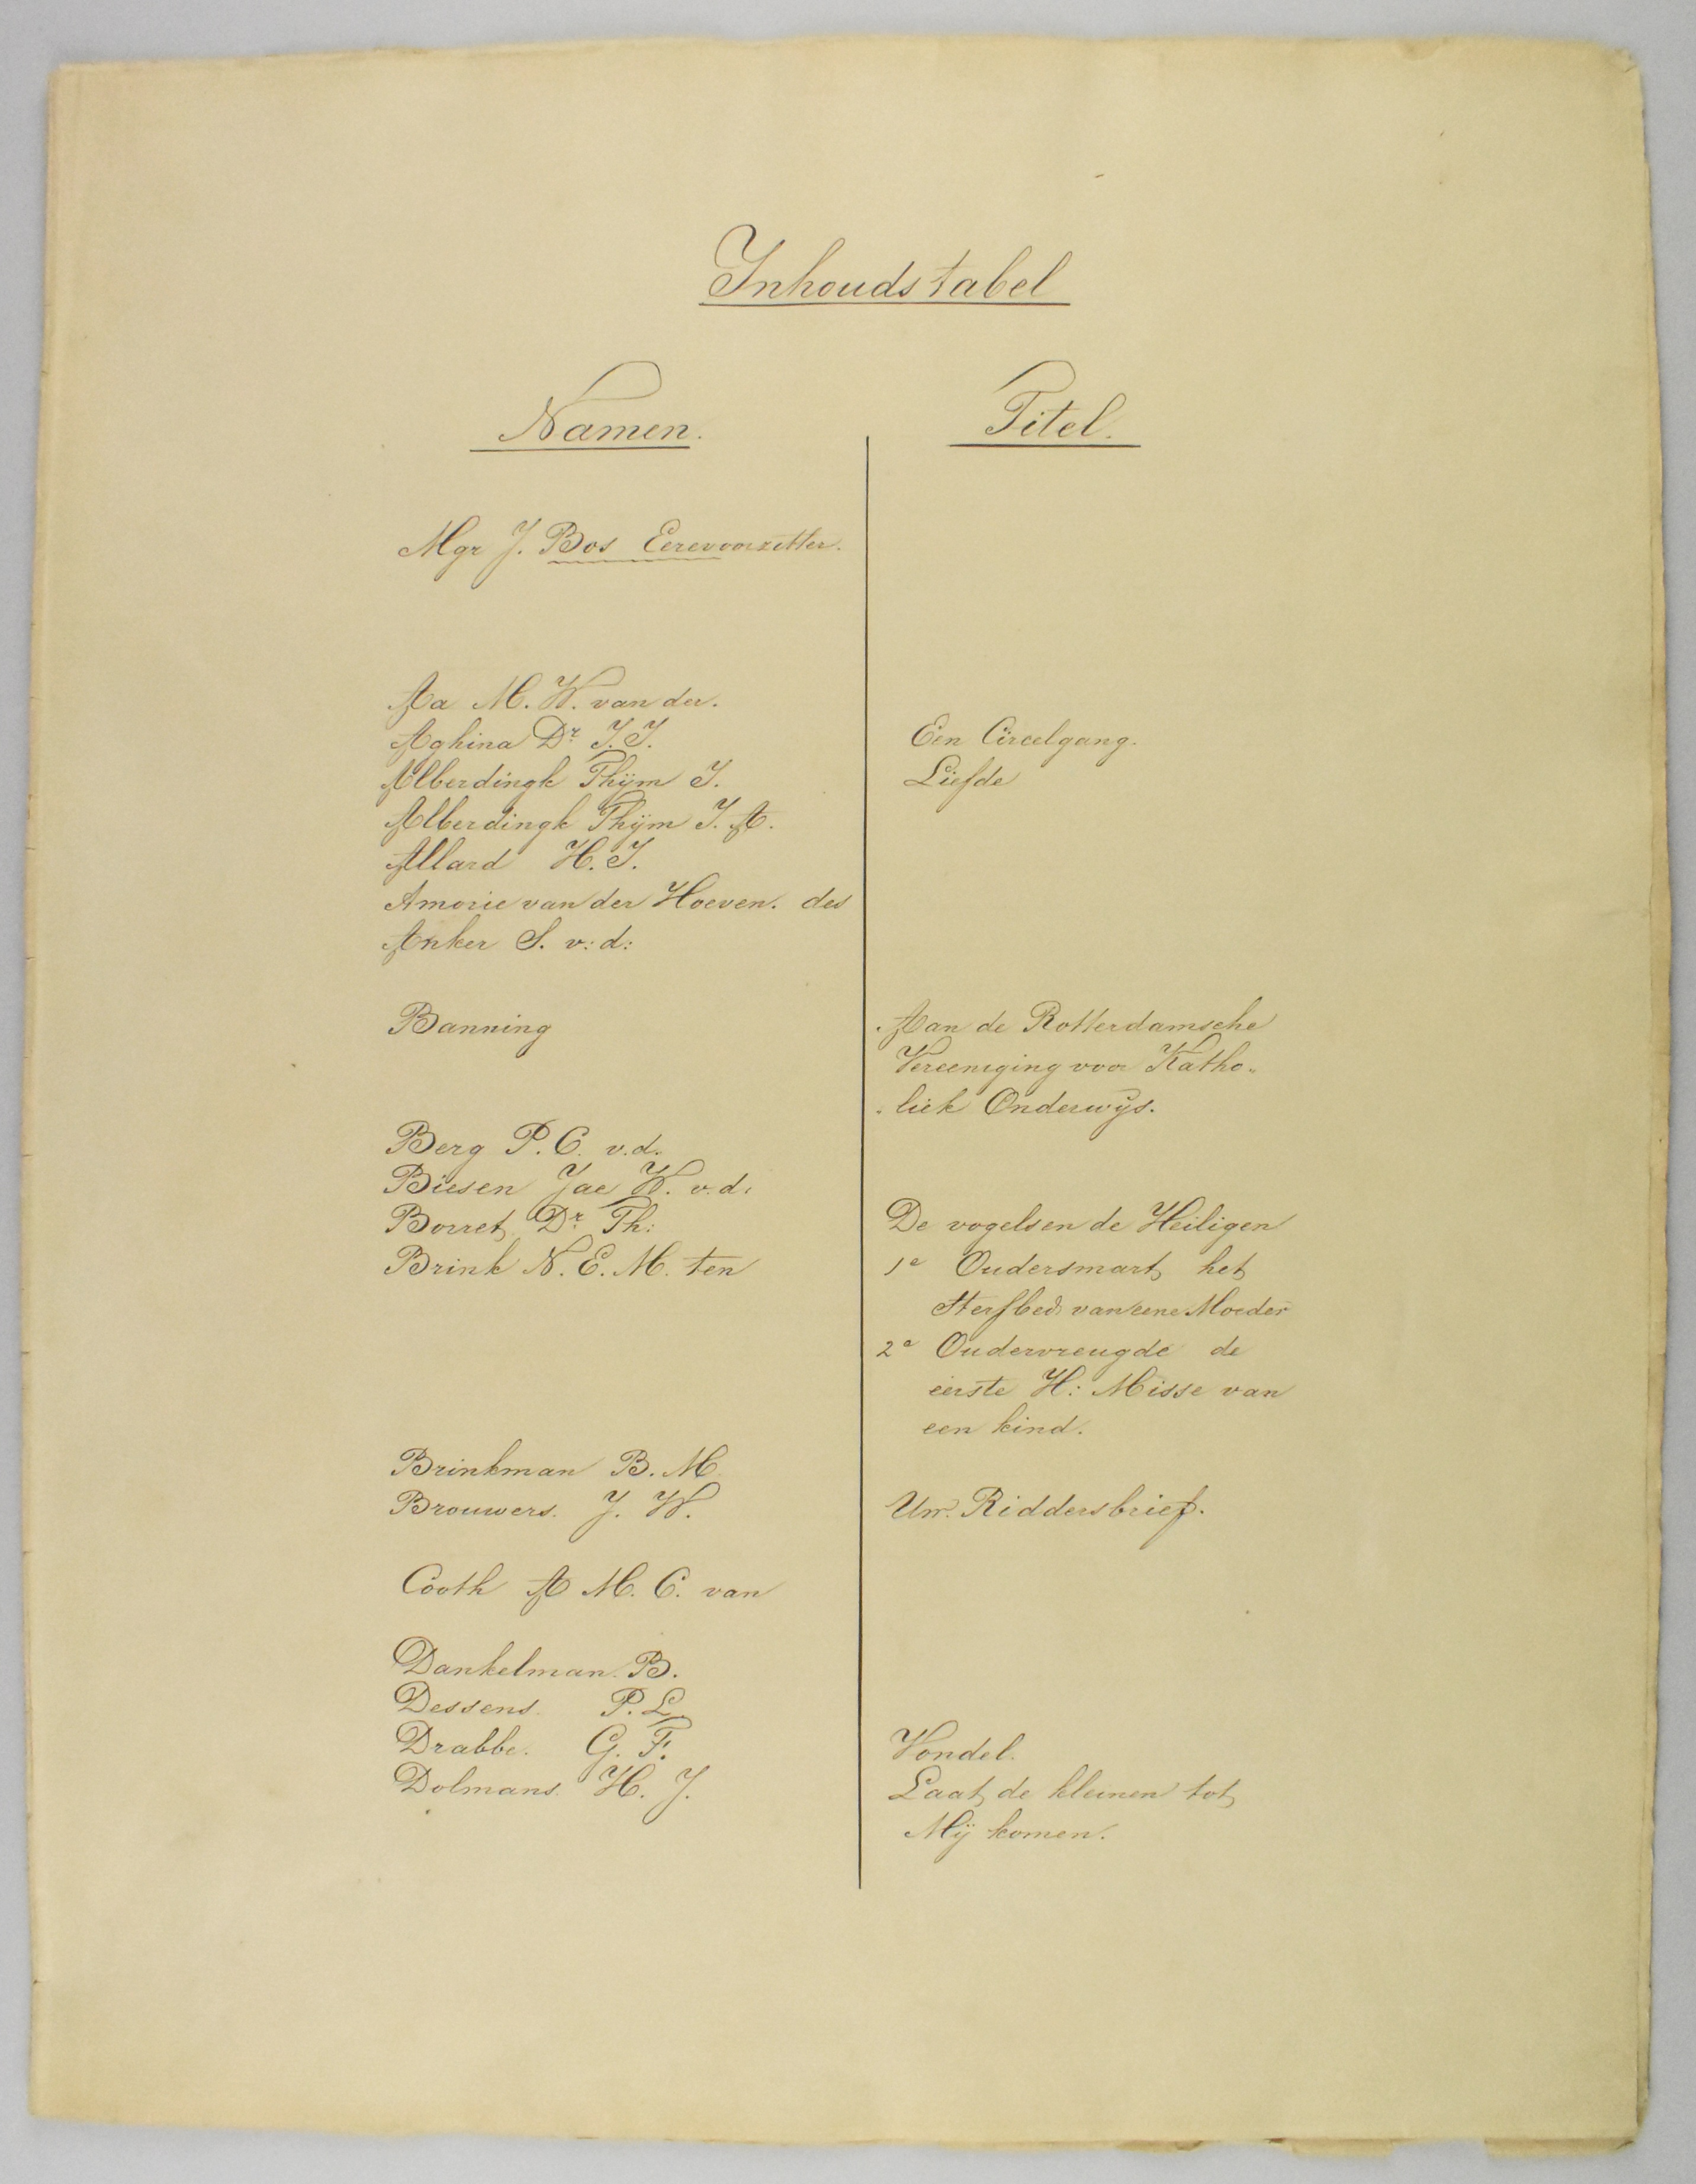 Inhoudstabel
Namen. Titel.
Mgr J. Bos Eerevoorzitter.
Aa M. W. van der.
Aghina Dr J. J. Een Circelgang.
Alberdingk Thÿm J. Liefde
Alberdingk Thÿm J. A.
Allard H. J.
Amorie van der Hoeven. des
Anker S. v: d:
Banning Aan de Rotterdamsche
Vereeniging voor Katho„
„liek Onderwÿs.
Berg P. C. v.d.
Biesen Jac W. v.d.
Borret Dr Th: De vogels en de Heiligen
Brink N. E. M. ten 1e Oudersmart het
Sterfbed van eene Moeder
2e Oudervreugde de
eerste H: Misse van
een kind.
Brinkman B. M.
Brouwers. J. W. Uw Riddersbrief.
Cooth A M. C. van
Dankelman. B.
Dessens. P. L.
Drabbe. G. F. Vondel.
Dolmans. H. J. Laat de kleinen tot
Mÿ komen.